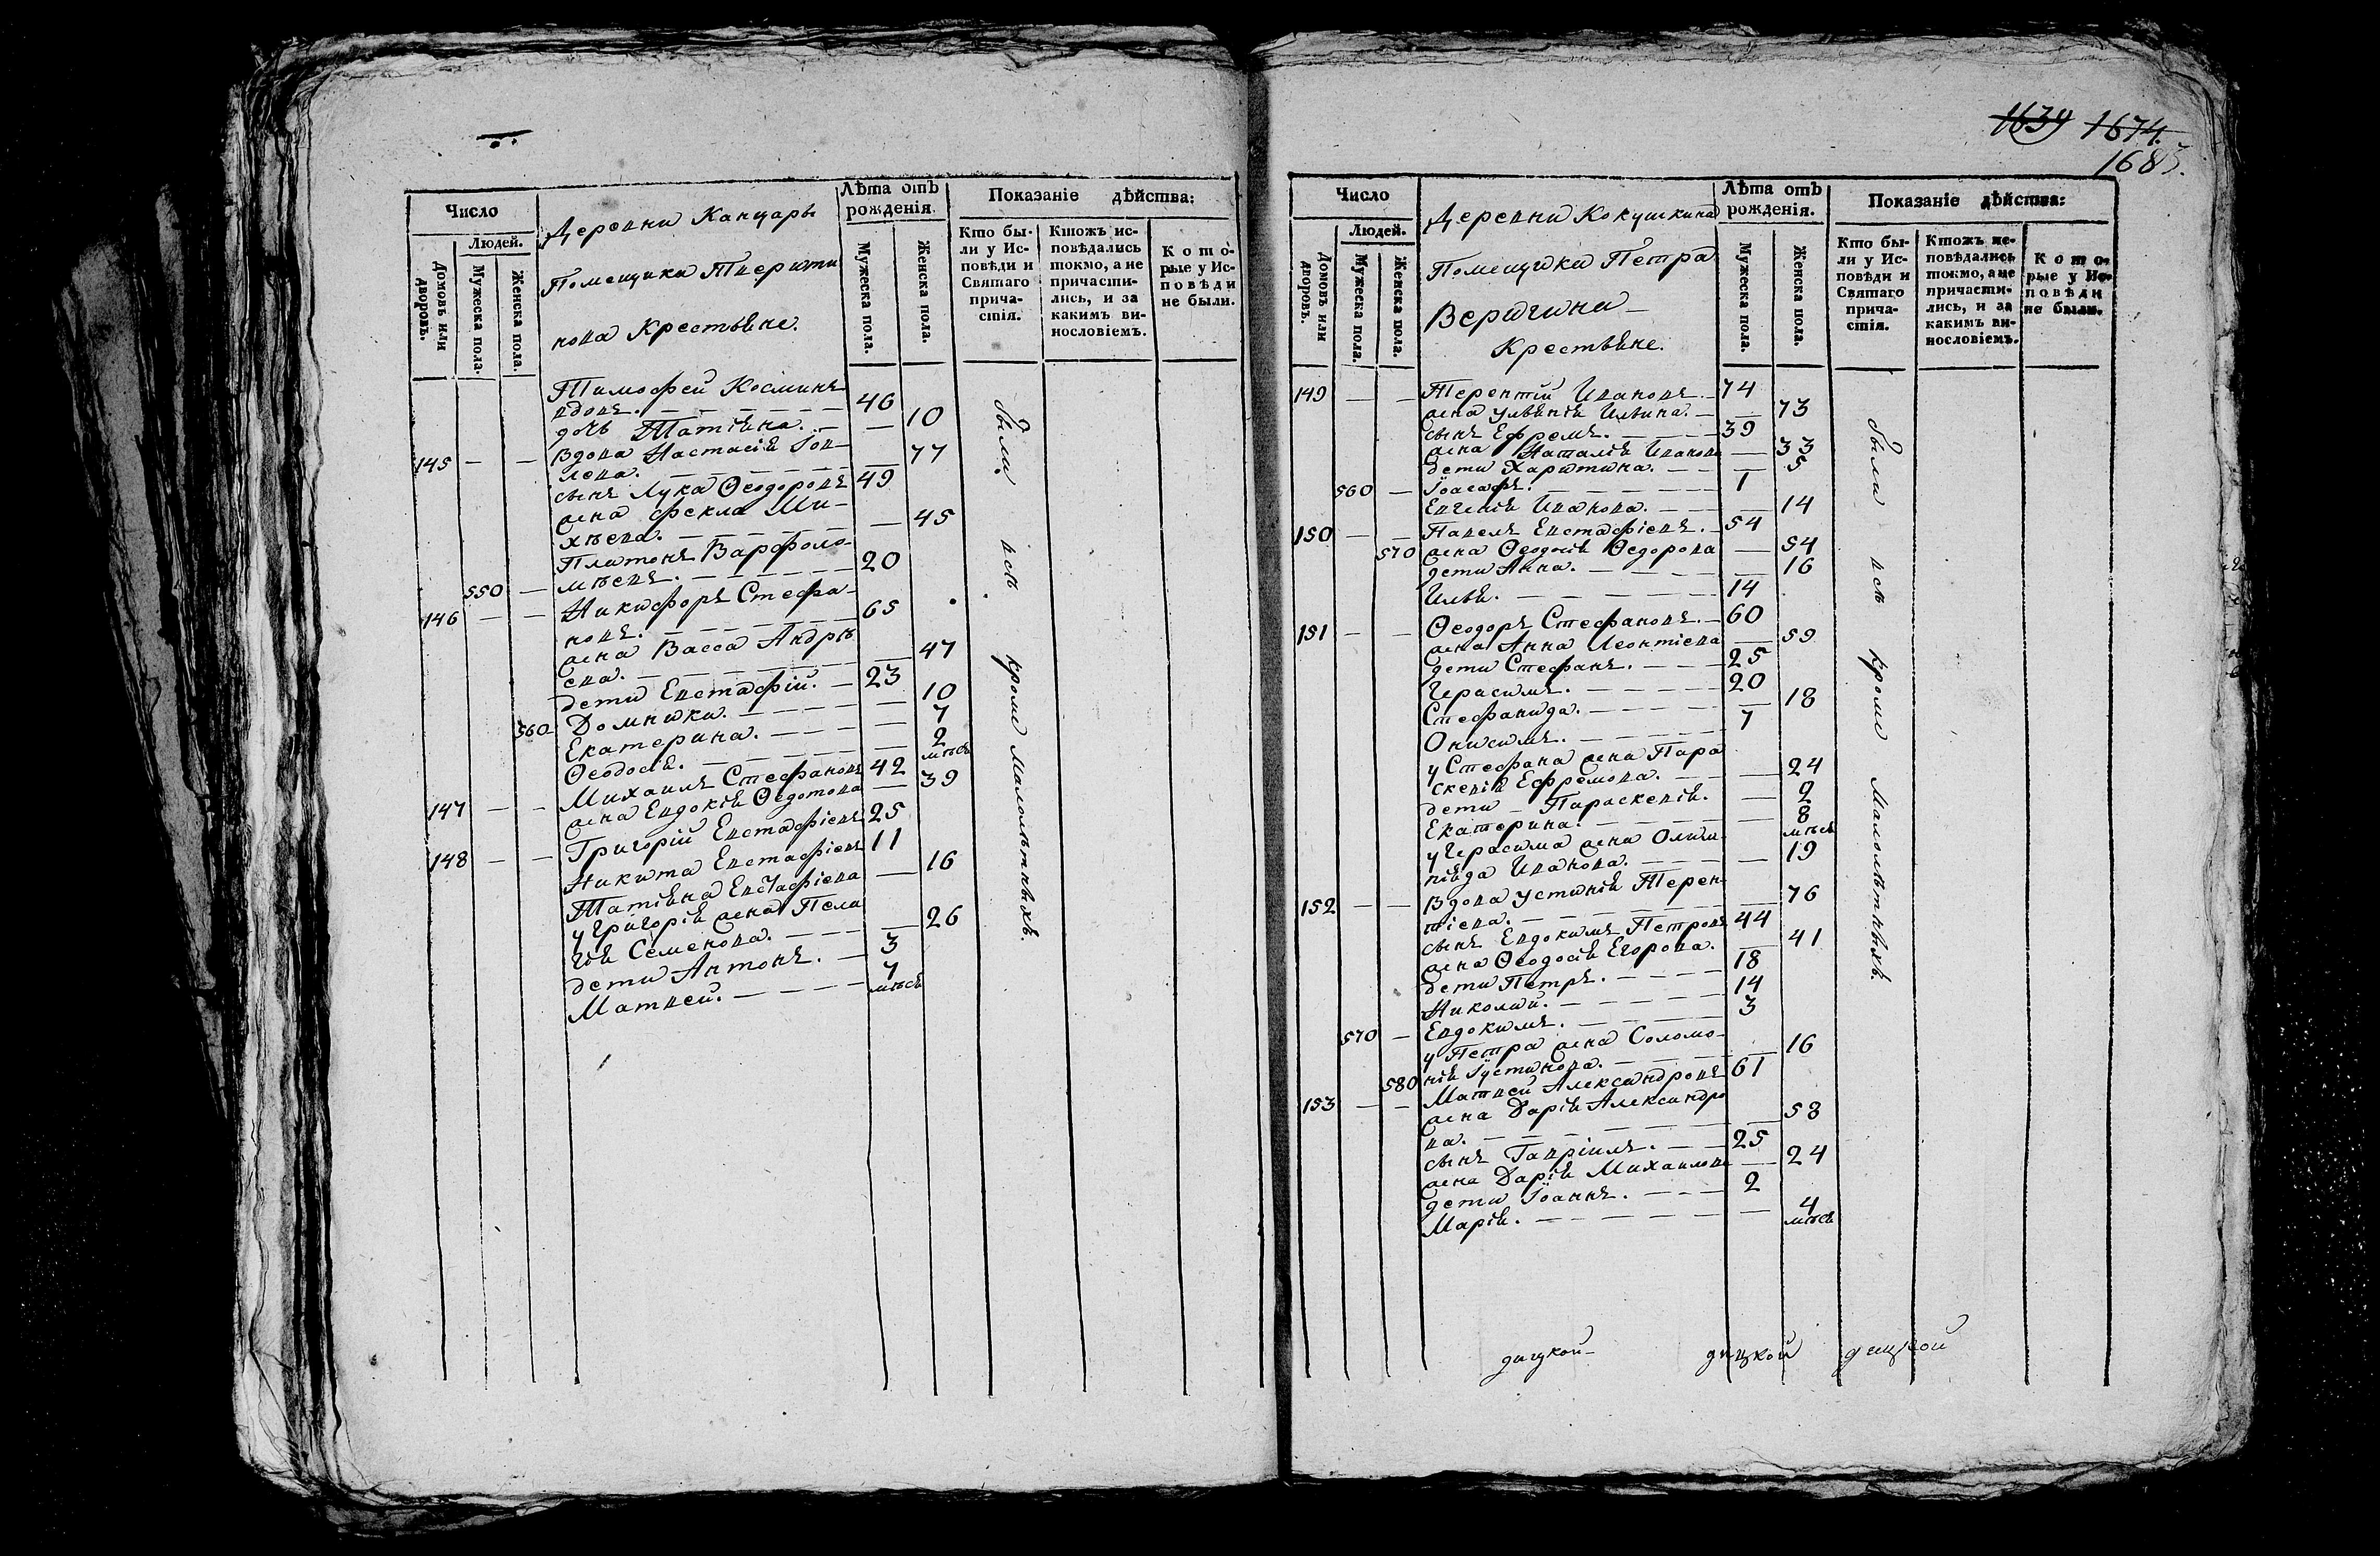 Число
Людей.
Домовъ или дворовъ.
Мужеска пола.
Женска пола.
Деревни Канцары
Помещика Тверити
нова Крестьяне.
Лѣта отъ рожденія.
Мужеска пола.
Женска пола.
Показаніе дѣйства:
Кто были у Исповѣди и Святаго причастія.
Ктожъ исповѣдались токмо, а не причастились, и за какимъ винословіемъ.
Которые у Исповѣди не были.
Тимофей Косминъ
вдовъ. 46
дочь Татіяна. 10
145 Вдова Настасія Іов
лева. 77
сынъ Лука Ѳеодоровъ 49
жена Фекла Ми-
хѣева. 45
Платонъ Варфоло-
550 мѣевъ. 20
146 Никифоръ Стефа-
новъ. 65
жена Васса Андрѣ
ева. 47
дети Евстафій. 23
560 Домника. 10
Екатерина. 7
Ѳеодосія. 2 мѣся
147 Михаилъ Стефановъ 42
жена Евдокія Ѳедотова 39
148 Григорій Евстафіевъ 25
Никита Евстафіевъ 11
Татіяна Евстафіева 16
у Григорія жена Пела
гія Семенова. 26
дети Антонъ. 3
Матвей. 7 мѣся
были вси кроме малолѣтныхъ.
1639 1674.
1685.
Число
Людей.
Домовъ или дворовъ.
Мужеска пола.
Женска пола.
Деревни Кокушкина
Помещика Петра
Веригина
Крестьяне.
Лѣта отъ рожденія.
Мужеска пола.
Женска пола.
Показаніе дѣйства:
Кто были у Исповѣди и Святаго причастія.
Ктожъ исповѣдались токмо, а не причастились, и за какимъ винословіемъ.
Которые у Исповѣди не были.
149 Терентій Ивановъ. 74
жена Ульянія Ильина. 73
сынъ Ефремъ. 39
жена Наталія Иванова 33
дети Харитина. 5
560 Іоасафъ. 1
Евгенія Иванова. 14
150 Павелъ Евстафіевъ. 54
570 жена Ѳеодосія Ѳедорова 54
дети Анна. 16
Илья. 14
151 Ѳеодоръ Стефановъ. 60
жена Анна Леонтіева 59
дети Стефанъ. 25
Герасимъ. 20
Стефанида. 18
Онисимъ. 7
у Стефана жена Пара
скевія Ефремова. 24
дети Параскевія. 2
Екатерина. 8 мѣся
у Герасима жена Олим
піяда Иванова. 19
152 Вдова Устинія Терен
тіева. 76
сынъ Евдокимъ Петровъ 44
жена Ѳеодосія Егорова. 41
дети Петръ. 18
Николай. 14
570 Евдокимъ. 3
у Петра жена Соломо-
580 нія Іустинова. 16
153 Матвей Александровъ 61
жена Дарія Александро
ва. 58
сынъ Гавріилъ. 25
жена Дарія Михаилова 24
дети Іоаннъ. 2
Марія. 4 мѣся
были вси кроме малолѣтныхъ.